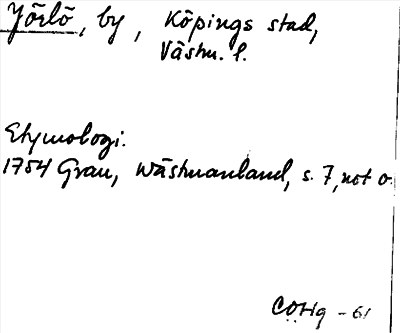 Jörlö, by, Köpings stad,
Västm. l.
Etymologi.
1754 Grau, Wästmanland, s. 7, not o.
COHg - 61